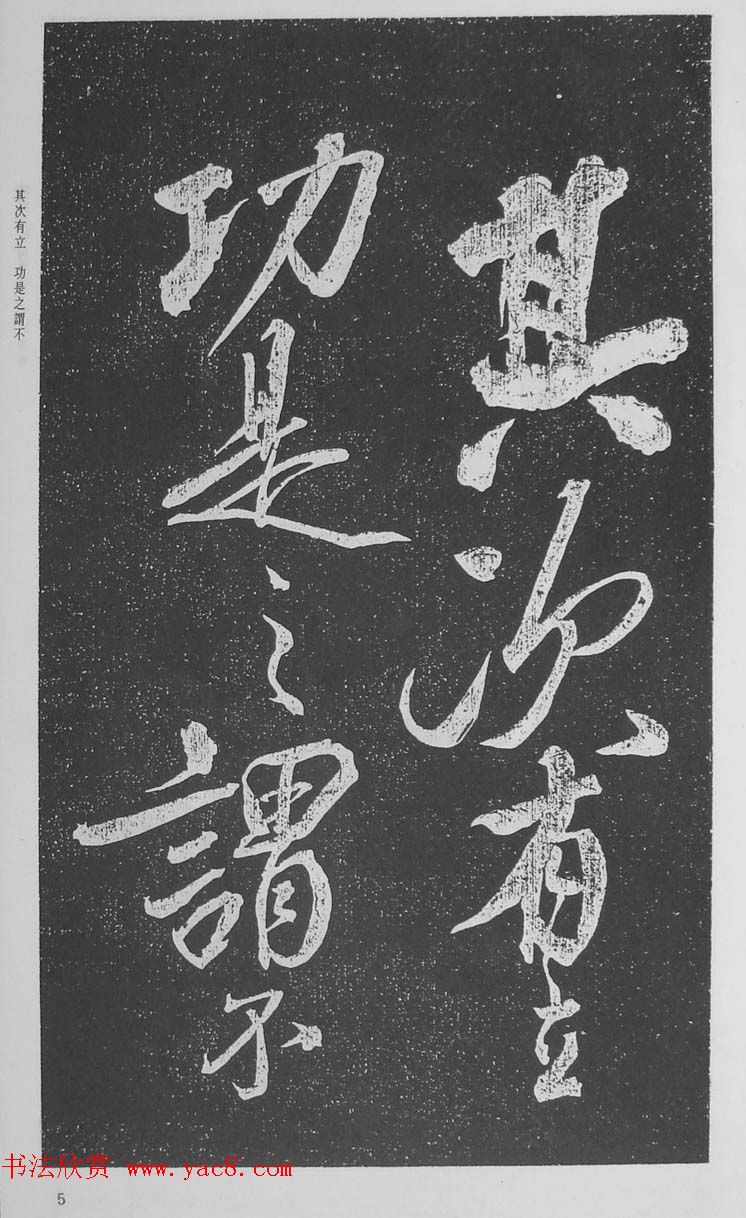 其次有立
功是之謂不
其次有立　功是之謂不
书法欣赏 www.yac8.com
5